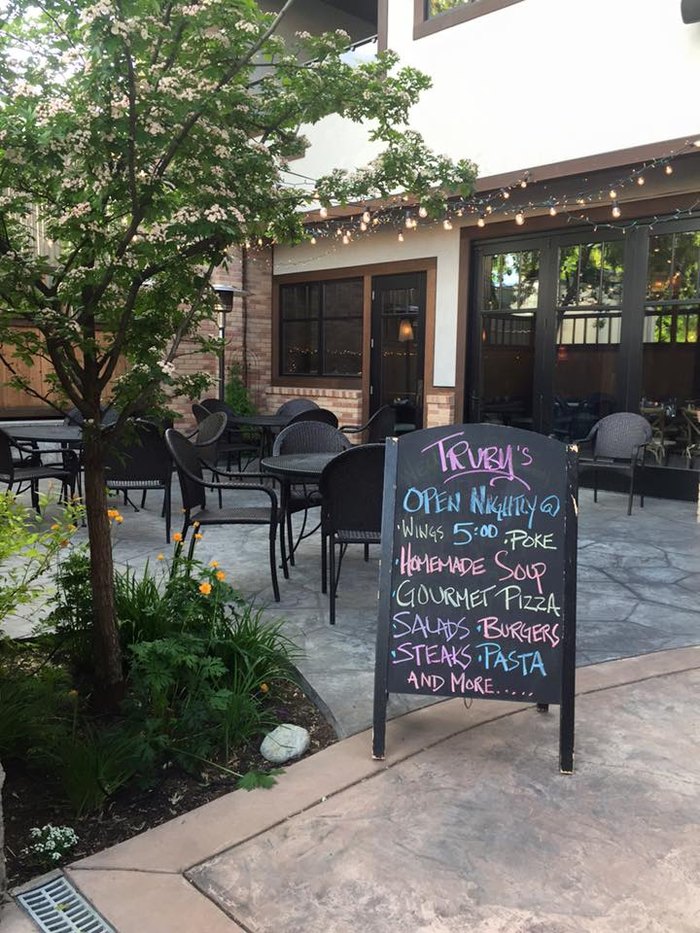 TRUBY'S
OPEN NIGHTLY @
·WINGS 5:00 ·POKE
·HOMEMADE SOUP
GOURMET PIZZA
·SALADS ·BURGERS
·STEAKS ·PASTA
AND MORE.....